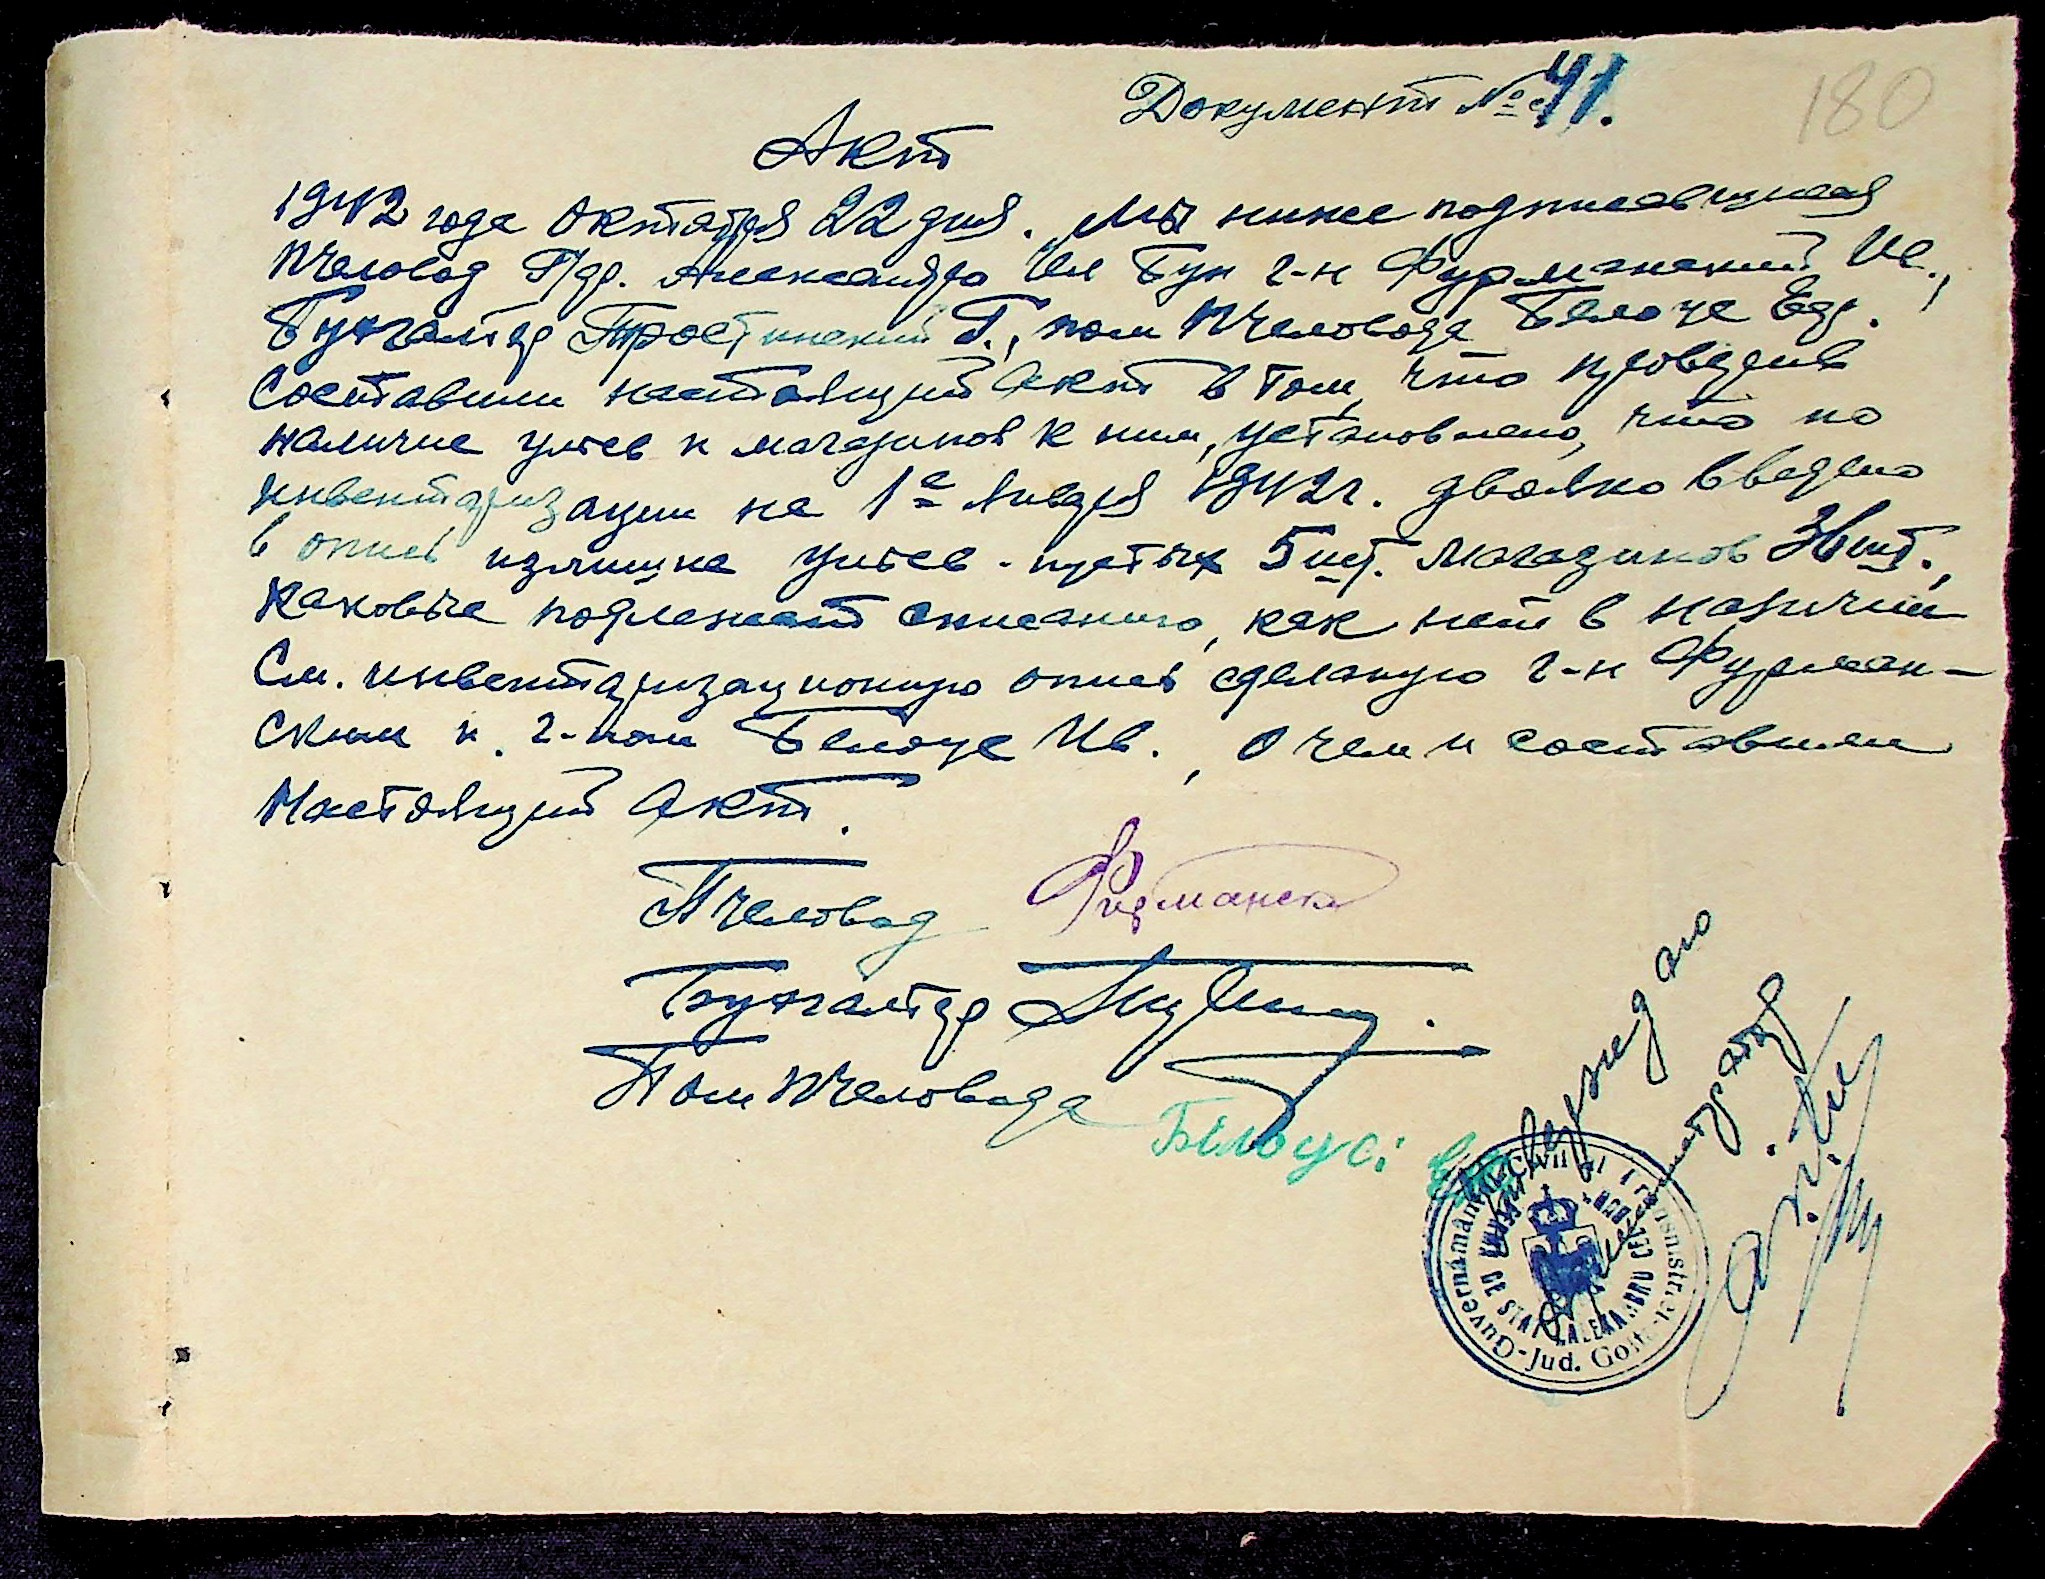 Документ № 41.
180
Акт
1942 года Октября 22 дня. Мы ниже подписавшиеся
Пчеловод Г/др. Александро Чел Бун г-н Фурманский Ив.,
Бухгалтер Тростинский Г., пом Пчеловода Белоус Едр.
Составили настоящий Акт в том, что проверив
наличие ульев и магазинов к ним, установлено, что по
инвентаризации на 1е Января 1942 г. двояко введено
в опись излишне ульев - пустых 5 шт. магазинов 36 шт.,
каковые подлежат списанию, как нет в наличии
См. инвентаризационную опись сделаную г-н Фурман-
ским и г-ном Белоус Ив., о чем и составили
Настоящий Акт.
Пчеловод Фурманск
Бухгалтер
Пом Пчеловода Бѣлоус:
Guvernământul Civil al Transnistriei - Jud. Golta
DE STAT ALEXANDRU CEL BUN